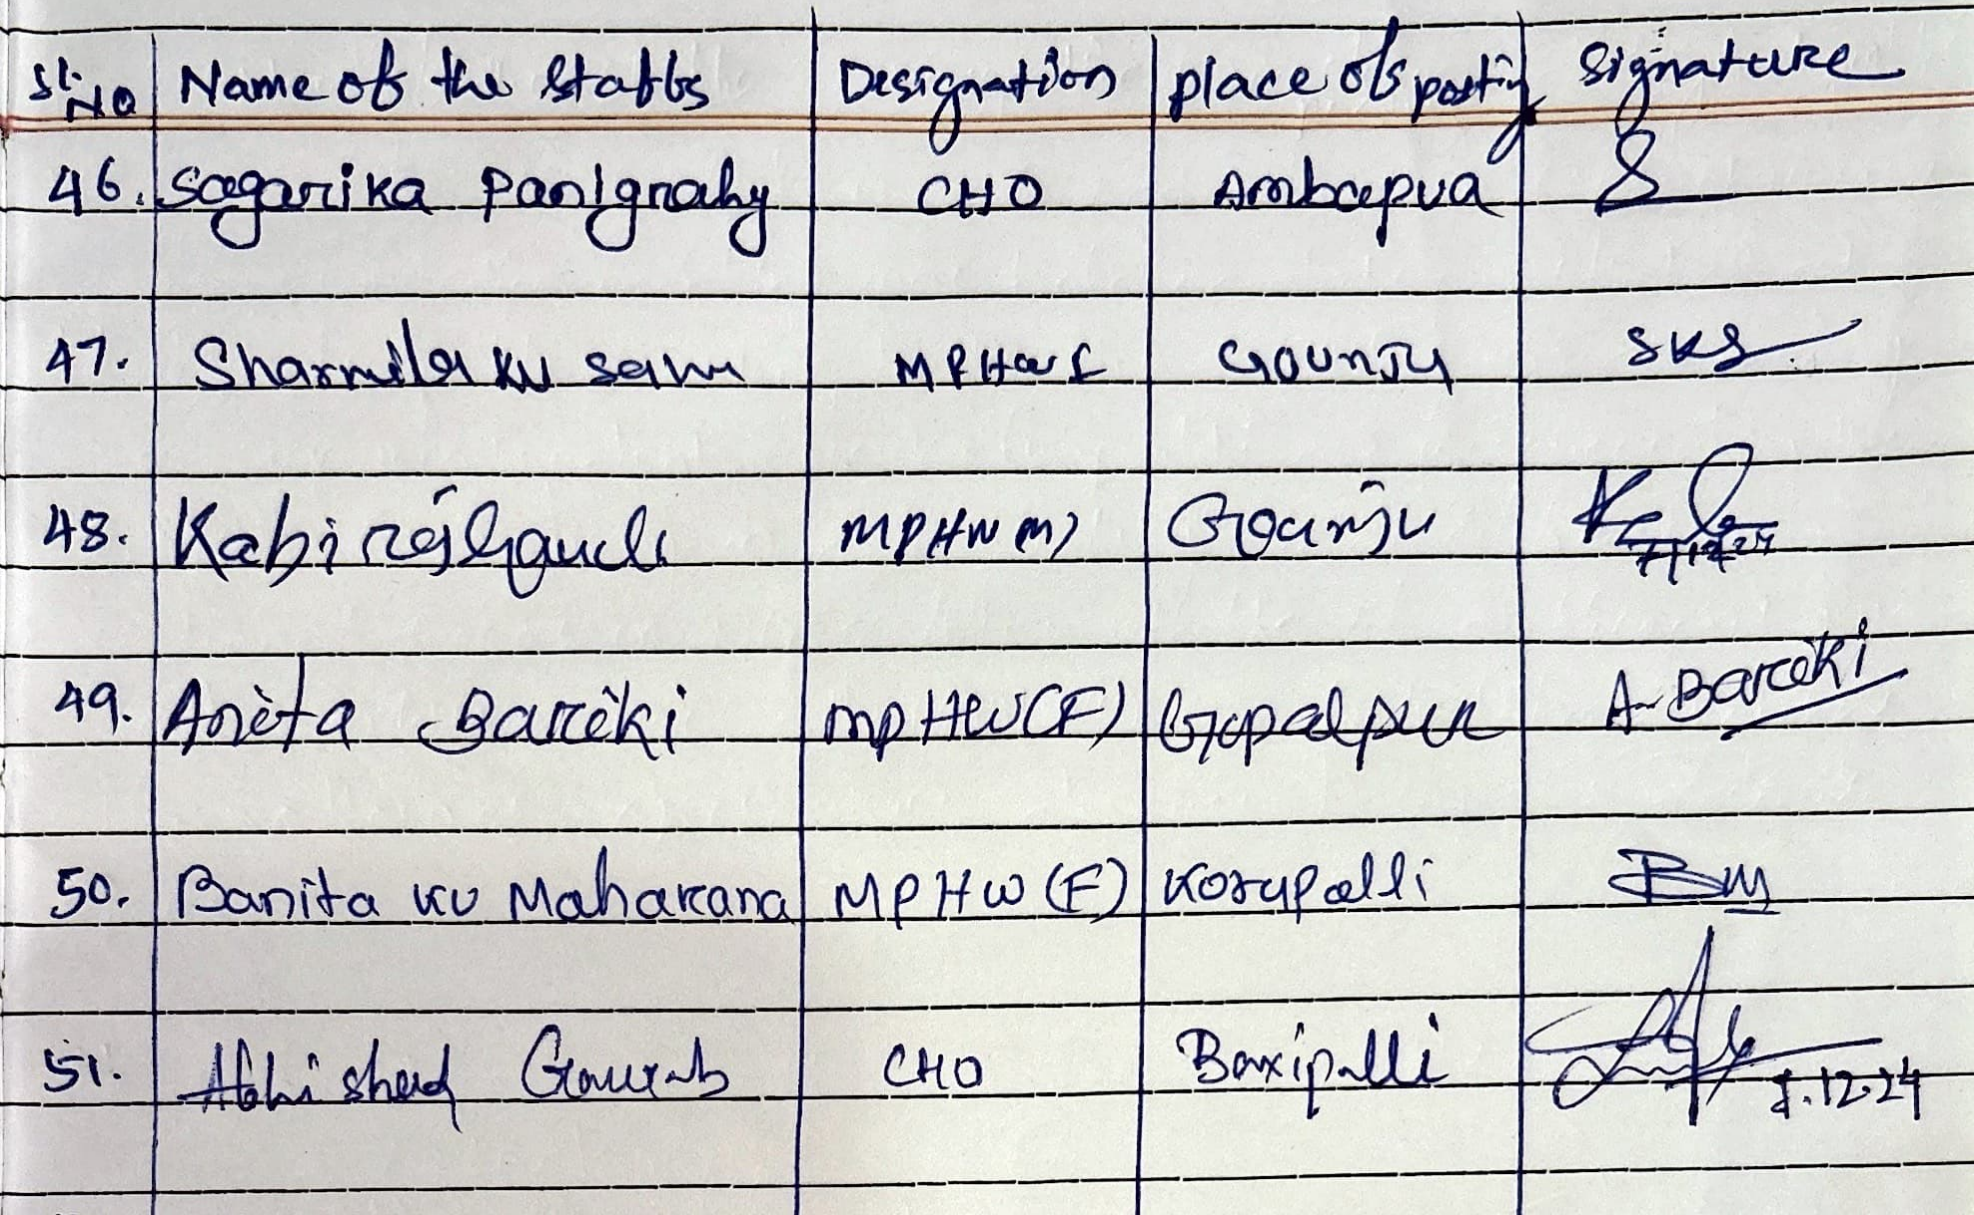 Sl. No Name of the Staffs Designation place of posting Signature
46. Sagarika Panigrahy CHO Ambapua
47. Sharmila Ku Sahu MPHW F Gounju SKS
48. Kabiraj Gauda MPHW (M) Gounju 7/12/24
49. Anita Bariki MPHW (F) Gopalpur A. Bariki
50. Banita Ku Maharana MPHW (F) Korapalli BM
51. Abhishek Gourab CHO Boxipalli 7.12.24